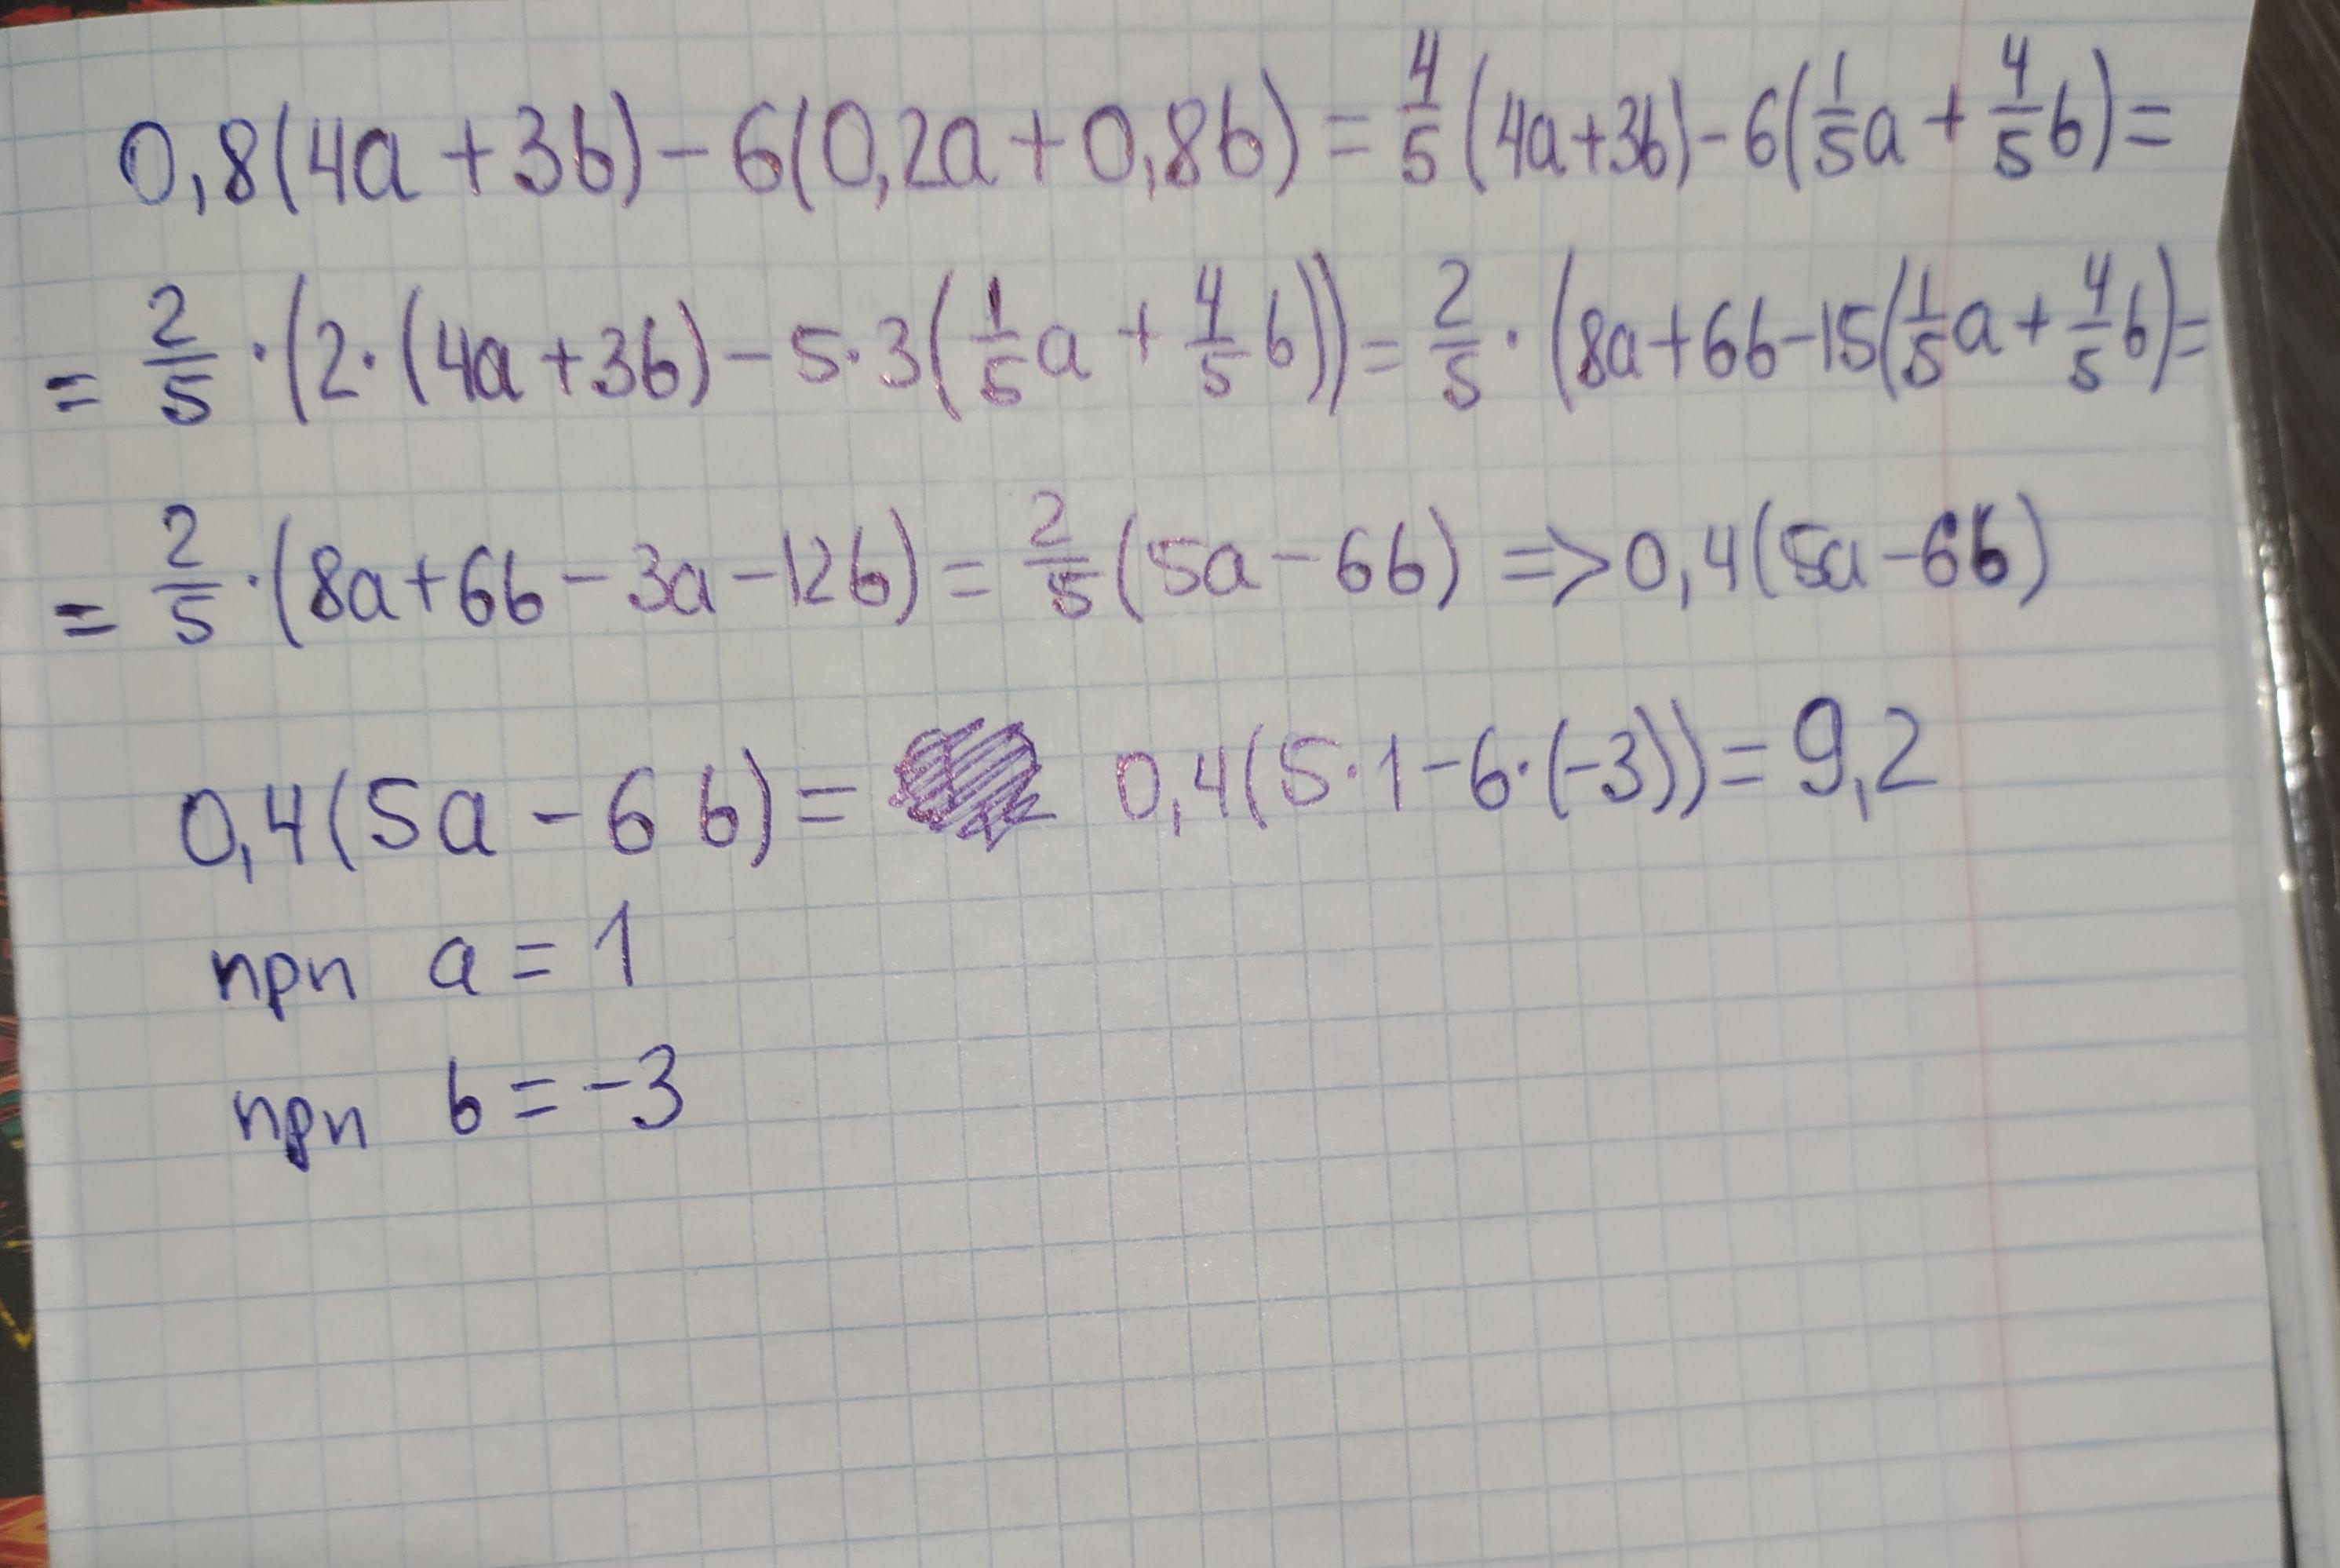 0,8(4a+3b)-6(0,2a+0,8b)=4/5(4a+3b)-6(1/5a+4/5b)=
=2/5·(2·(4a+3b)-5·3(1/5a+4/5b))=2/5·(8a+6b-15(1/5a+4/5b)=
=2/5·(8a+6b-3a-12b)=2/5(5a-6b)=>0,4(5a-6b)
0,4(5a-6b)= 0,4(5·1-6·(-3))=9,2
при a=1
при b=-3